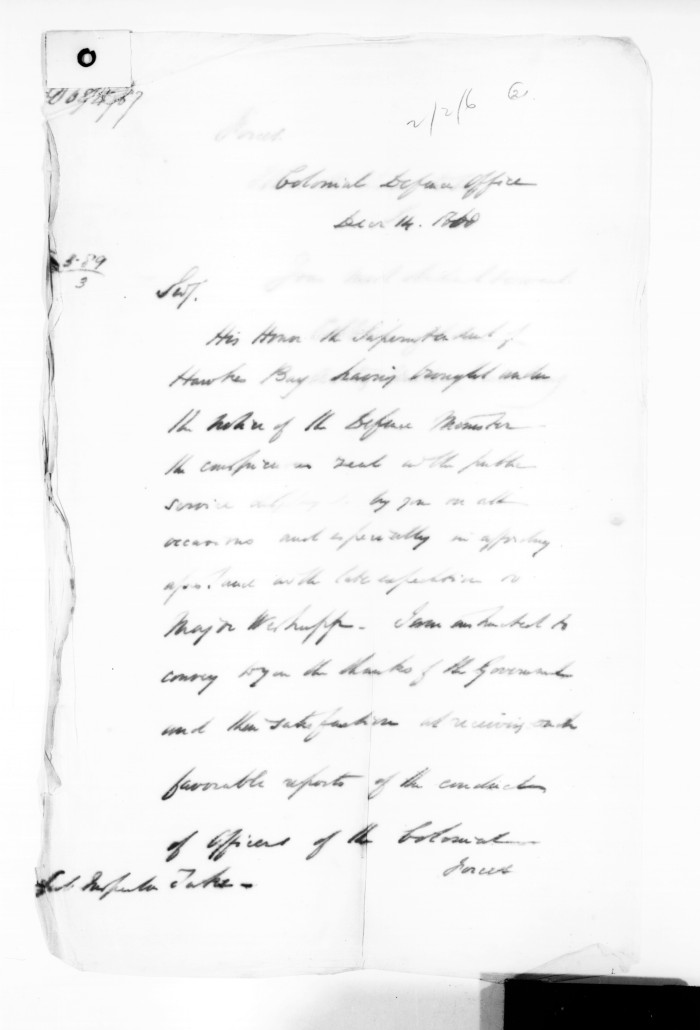 2/2/6
Colonial Defence Office
Decr 14. 1868
389
3
Sir,
His Honor the Superintendent of
Hawkes Bay having brought under
the notice of the Defence Minister
the conspicuous zeal in the public
service by you on all
occasions and especially in affording
late expedition
Major Westrupp - I am instructed to
convey to you the thanks of the Government
and their satisfaction at receiving such
favorable reports of the conduct
of Officers of the Colonial
Forces
Sub. Inspector